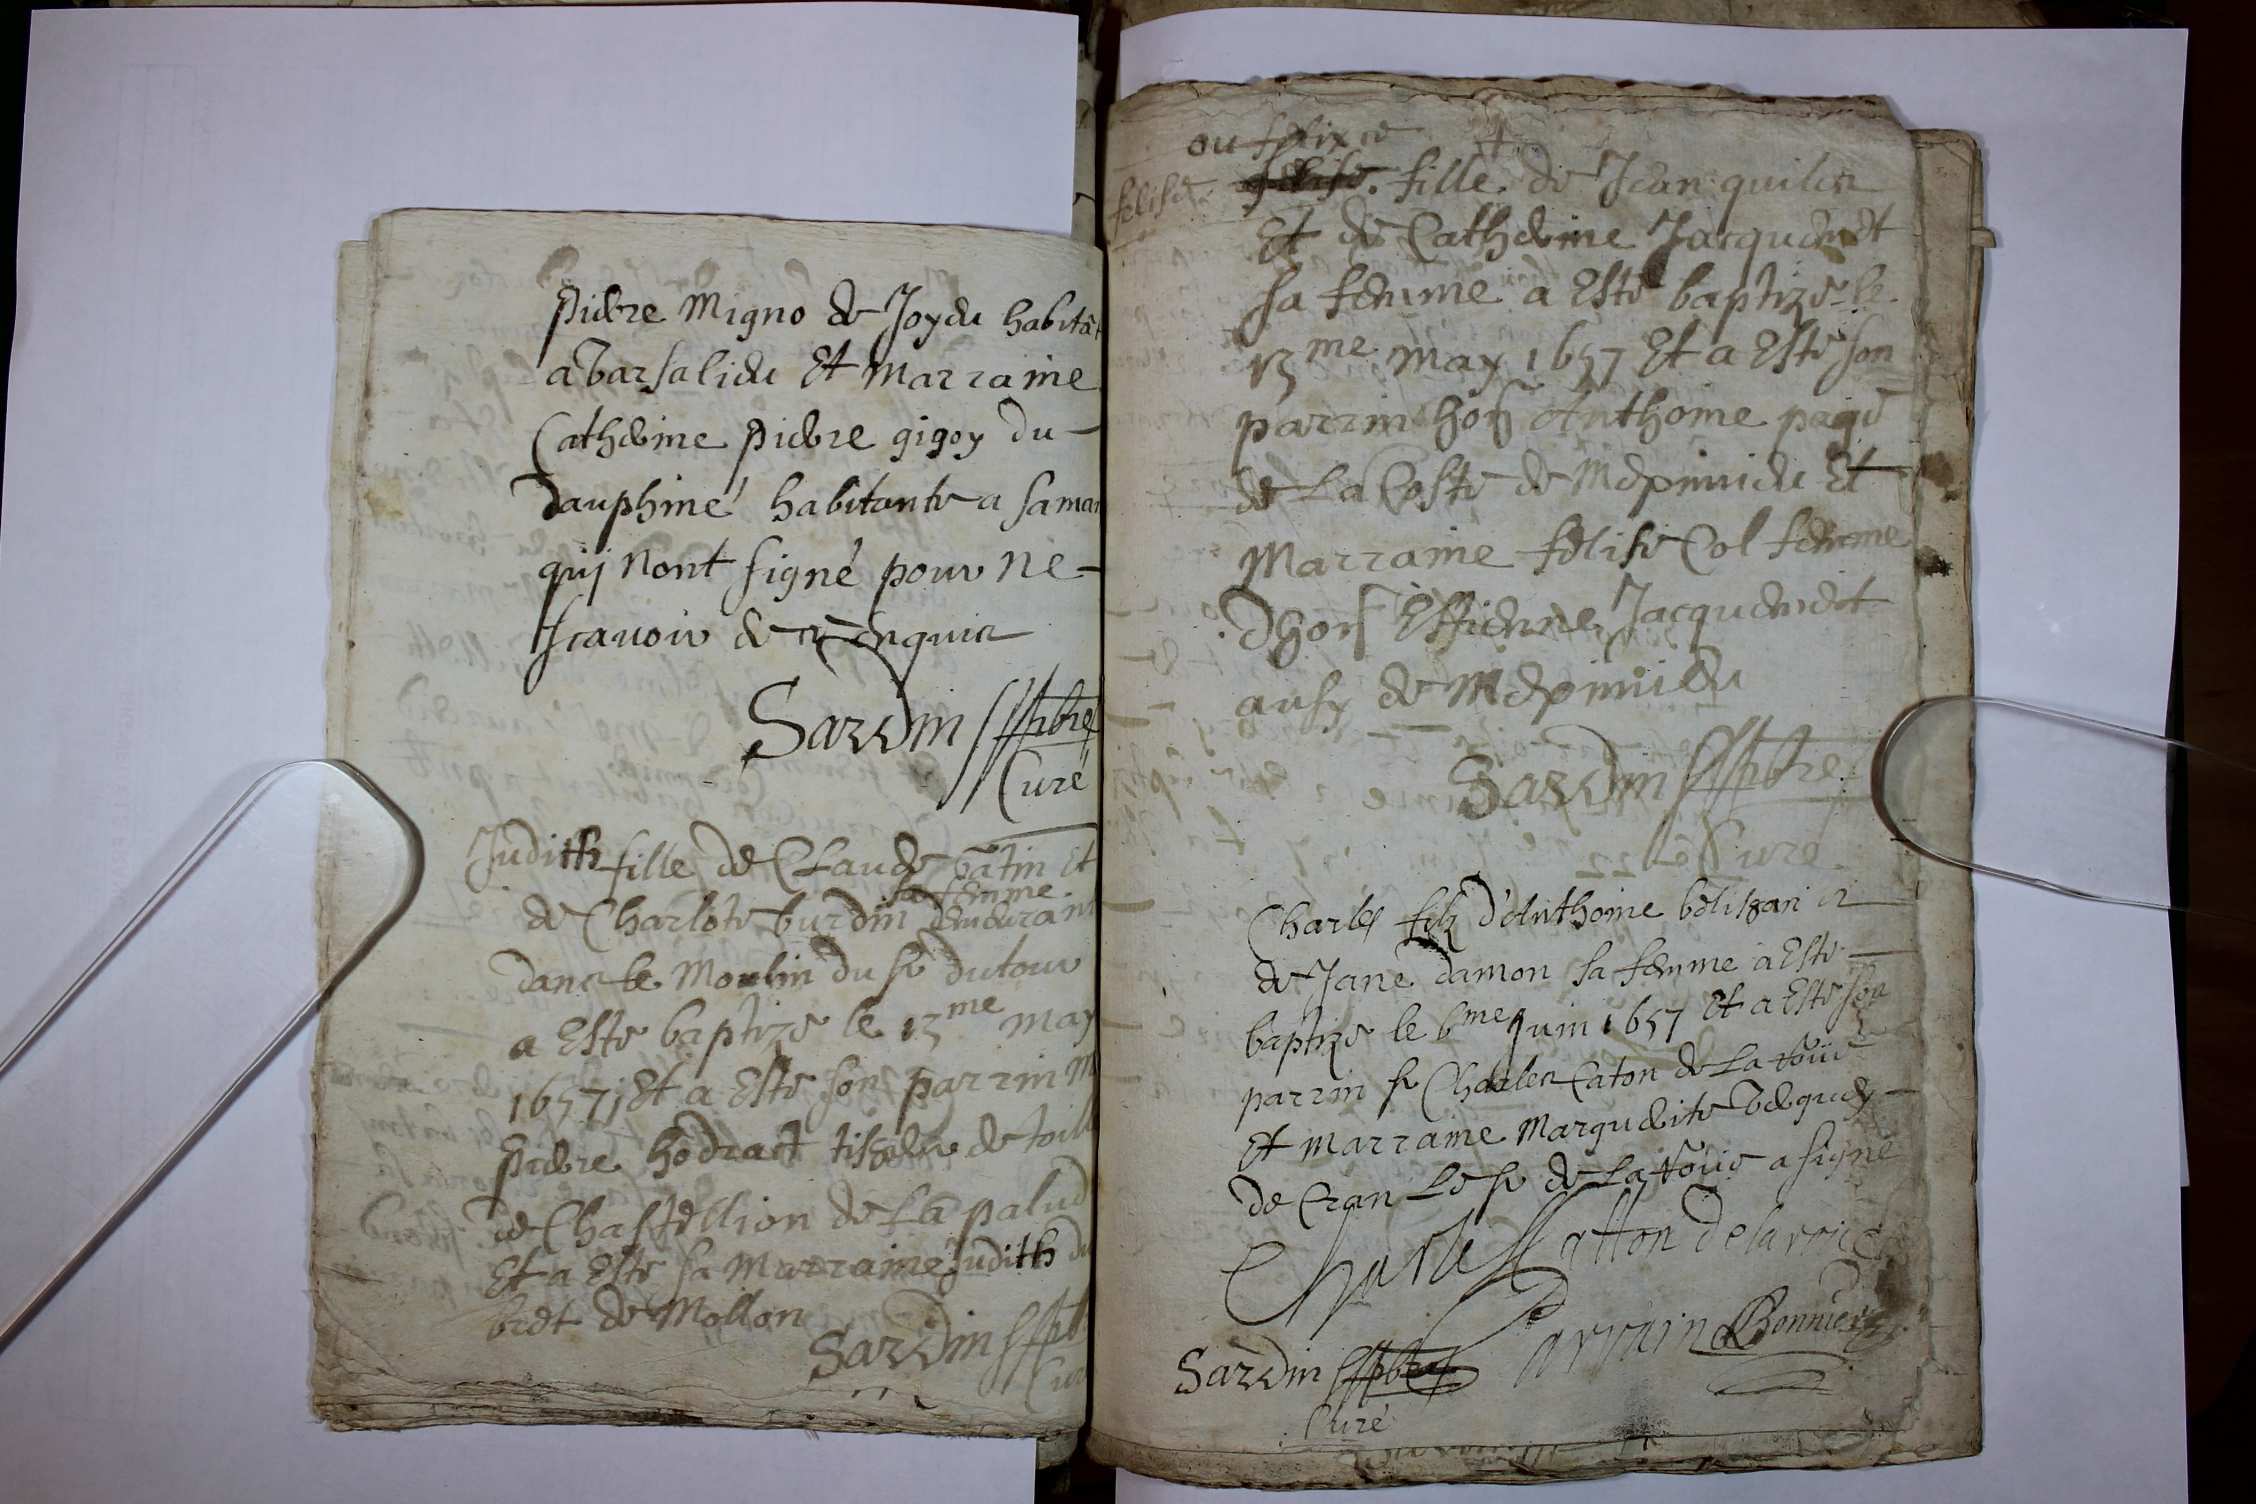 Pierre Migno de Joyeu habitãt
a Barsalieu Et Marraine
Catherine Pierre gigoy du
dauphiné habitante a samar
qui nont signé pour ne
scavoir de ce enquis
Sardin pbre
Curé
Judith fille de Claude bãtin Et
sa femme
de Charlote burdin demeurant
dans le Moulin du sr dutour
a Esté baptize le 13me May
1657 Et a Esté son parrin M
Pierre hodract tisseur de toille
de Chastellion de La palud
Et a Esté sa Marraine Judith du
bret de Mollon
Sardin pb
Cur
ou felixe
felise felise. fille de Jean quiles
Et de Catherine Jacquemet
sa femme a Esté baptize le
13me May 1657 Et a Esté son
parrin hon Anthoine page
de La Coste de Meximieu Et
Marraine felise Col femme
dhon Estienne Jacquemet
ausy de Meximieu
Sardin pbre
Curé
Charles filz d'Anthoine belissan et
de Jane damon sa femme a Esté
baptize le 6me Juin 1657 Et a Esté son
parrin sr Charles Caton de La roüe
Et Marraine Marguerite
de Cran Le sr de La roüe a signé
Charles Catton De la roüe
Parrain Bonnier
Sardin pbre
Curé